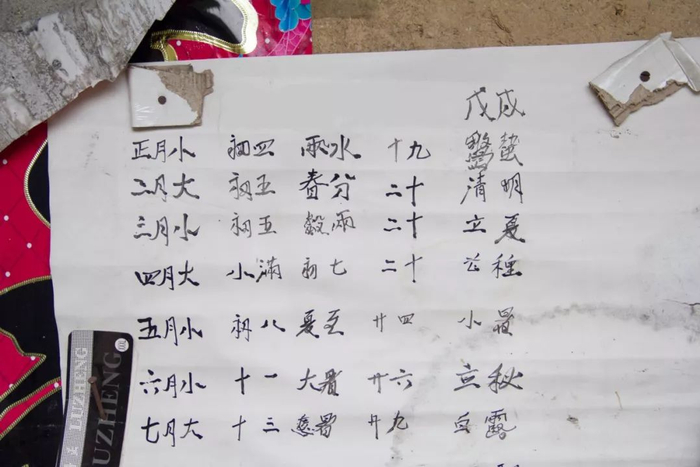 戊戌
正月小 初四 雨水 十九 驚蟄
二月大 初五 春分 二十 清明
三月小 初五 穀雨 二十 立夏
四月大 小滿 初七 二十 芒種
五月小 初八 夏至 廿四 小暑
六月小 十一 大暑 廿六 立秋
七月大 十三 處暑 廿九 白露
LUZHENG
LUZHENG